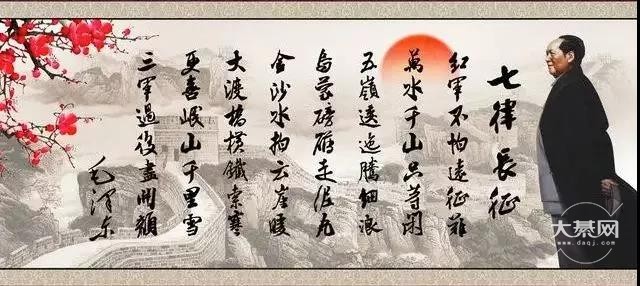 七律長征
紅軍不怕遠征難
萬水千山只等閑
五嶺逶迤騰細浪
烏蒙磅礴走泥丸
金沙水拍云崖暖
大渡橋橫鐵索寒
更喜岷山千里雪
三軍過後盡開顏
毛澤東
大綦网
www.daqj.com